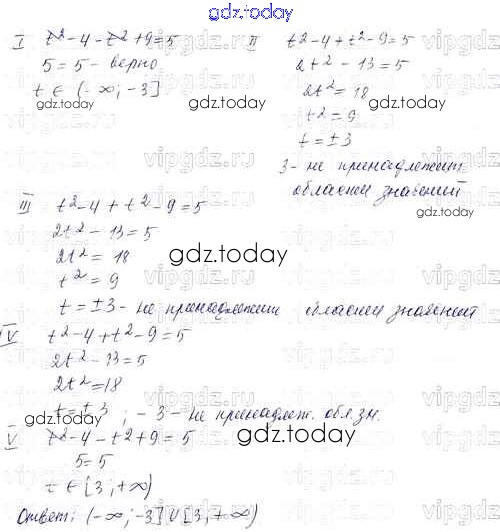 gdz.today
I t²-4-t²+9=5
5=5 - верно
t ∈ (-∞; -3]
gdz.today
II t²-4+t²-9=5
2t²-13=5
2t²=18
t²=9
t=±3
3 - не принадлежит
области значений
gdz.today
III t²-4+t²-9=5
2t²-13=5
2t²=18
t²=9
t=±3 - не принадлежит области значений
gdz.today
IV t²-4+t²-9=5
2t²-13=5
2t²=18
t=±3; -3 - не принадлеж. обл. зн.
gdz.today
V t²-4-t²+9=5
5=5
t ∈ [3; +∞)
Ответ: (-∞; -3] U [3; +∞)
gdz.today
gdz.today
vipgdz.ru